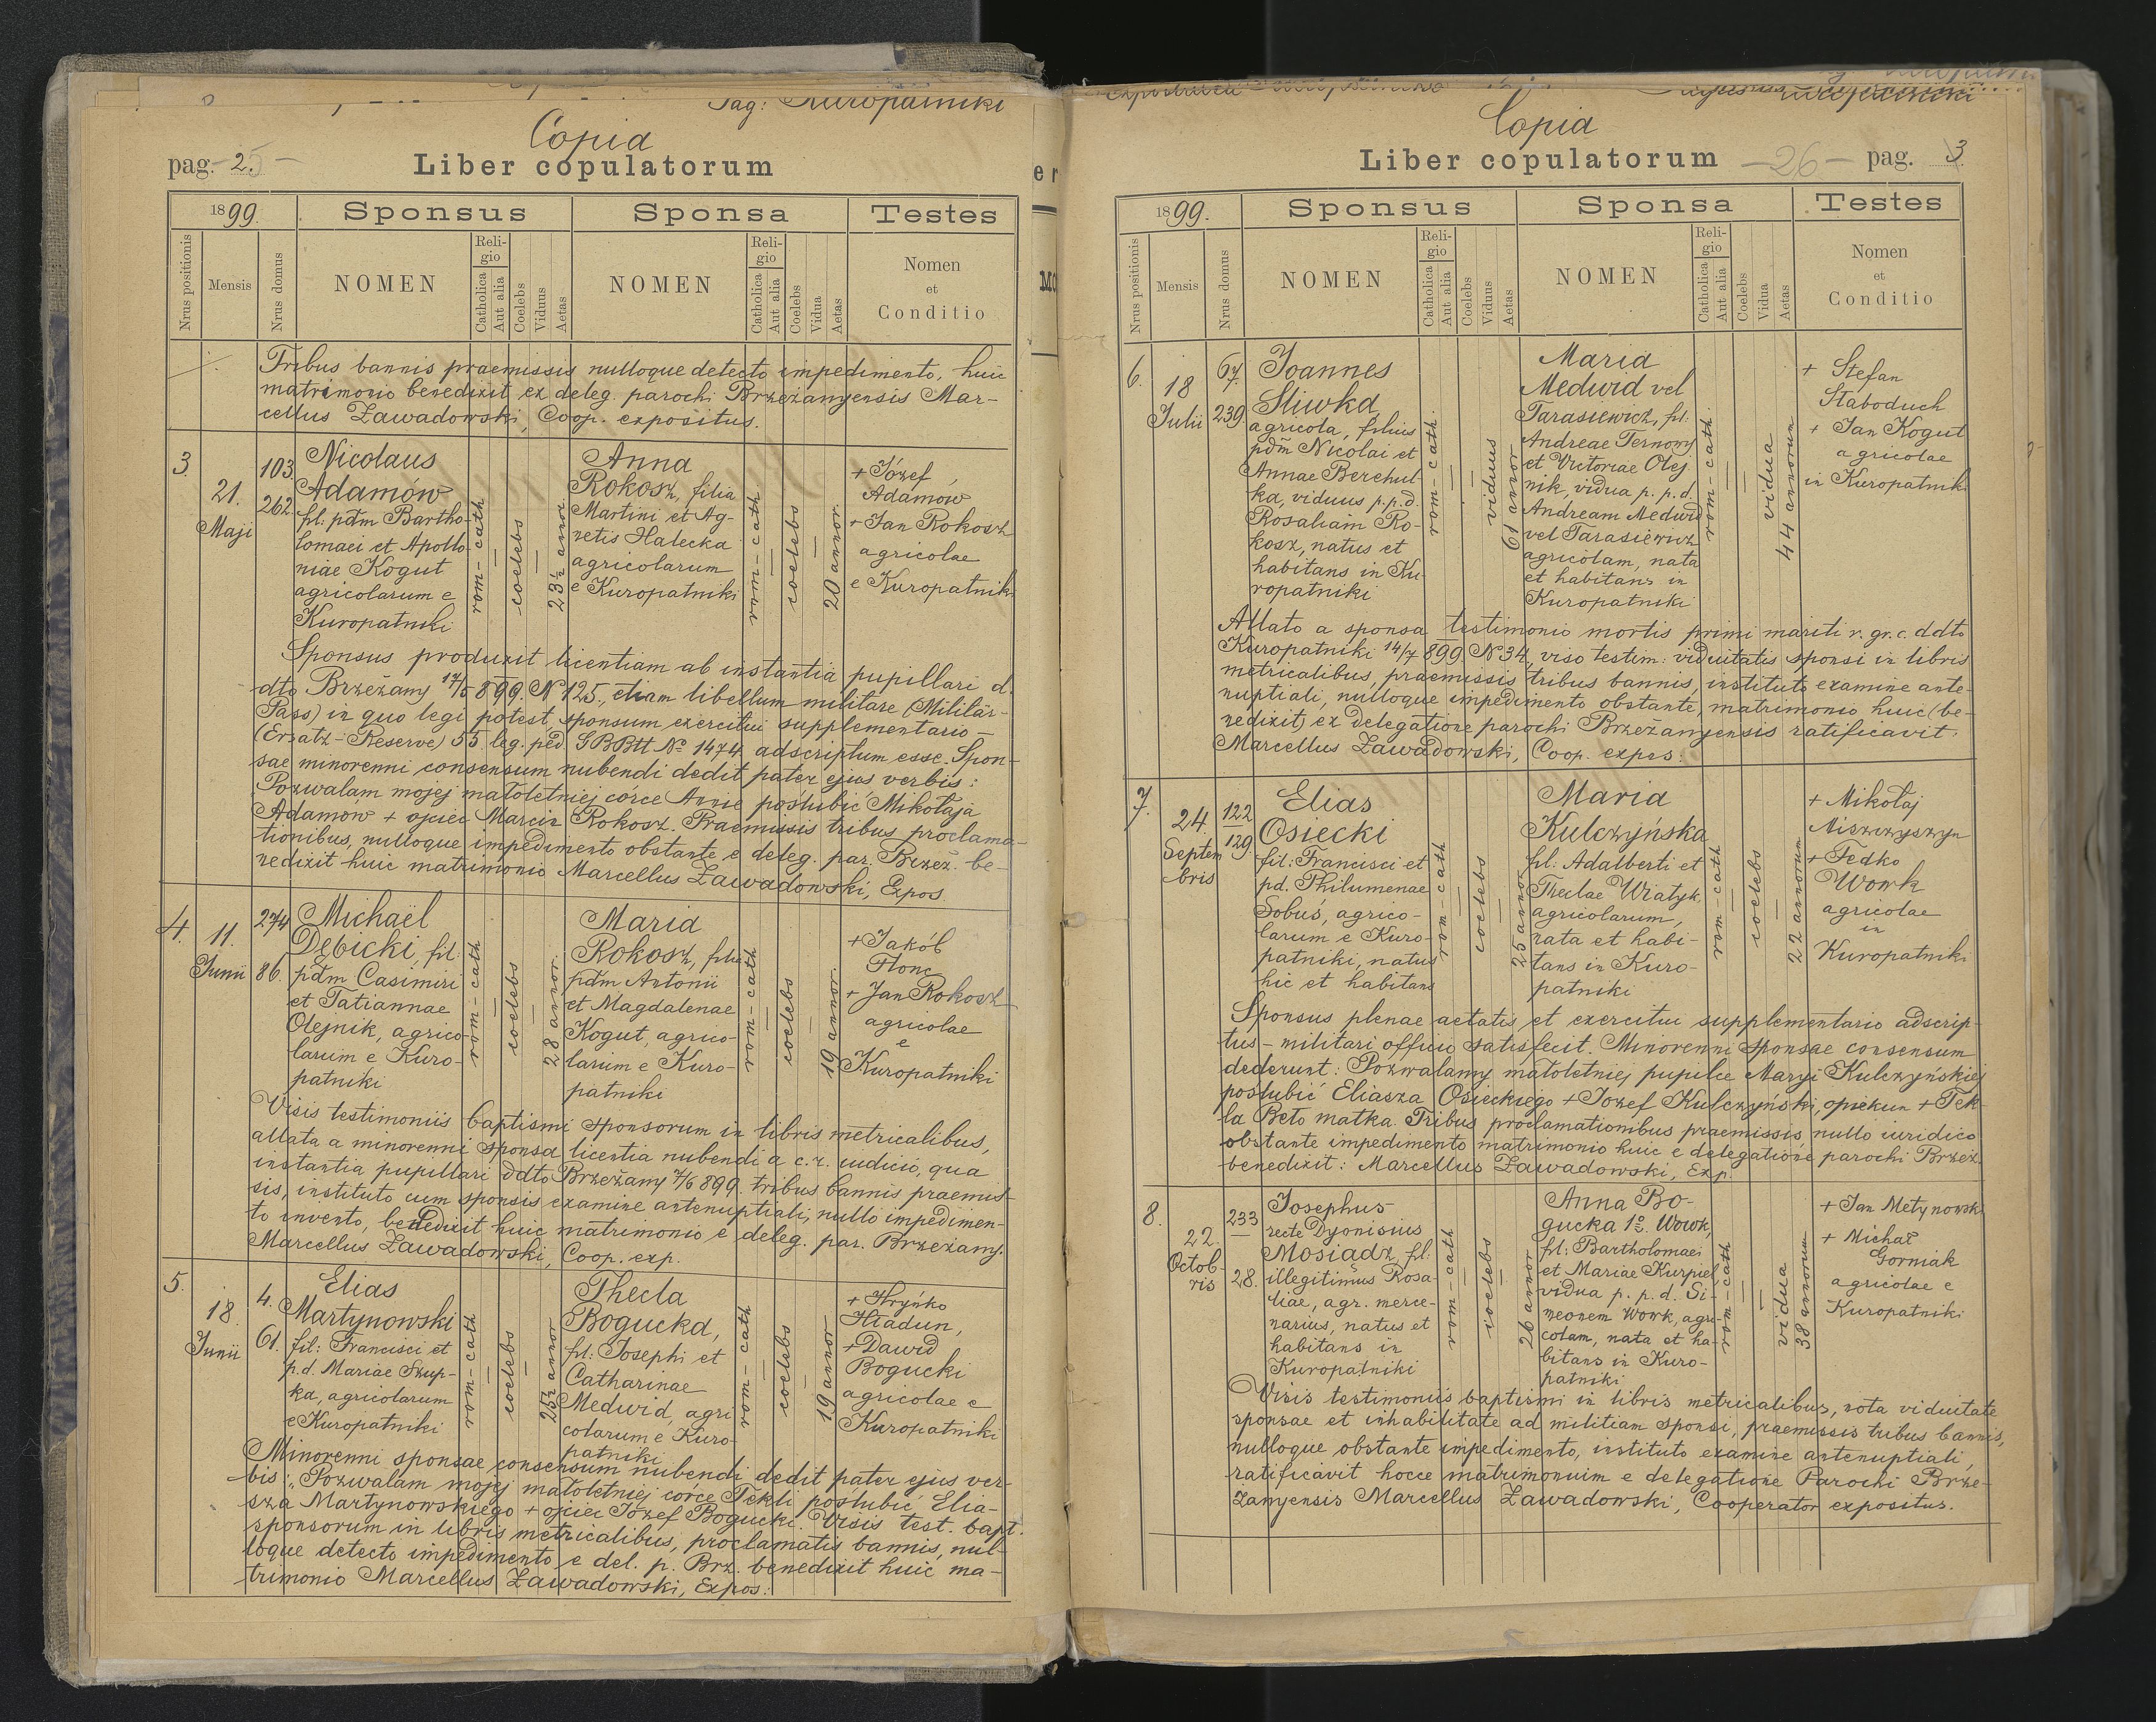 Pag: Kuropatniki
Copia
pag. 25
Liber copulatorum
1899.
Sponsus
Sponsa
Testes
Nrus positionis
Mensis
Nrus domus
NOMEN
Religio
Catholica
Aut alia
Coelebs
Viduus
Aetas
NOMEN
Religio
Catholica
Aut alia
Coelebs
Vidua
Aetas
Nomen
et
Conditio
Tribus bannis praemissis nulloque detecto impedimento, huic
matrimonio benedixit ex deleg. parochi Brzeżanyensis Mar-
cellus Zawadowski, Coop. expositus.
3.
21.
Maji
103
262
Nicolaus
Adamów
fil: pdm Bartho-
lomaei et Apollo-
niae Kogut
agricolarum e
Kuropatniki
rom-cath
coelebs
23½ annor
Anna
Rokosz, filia
Martini et Ag-
netis Halecka
agricolarum
e Kuropatniki
rom-cath
coelebs
20 annor.
+ Józef
Adamów
+ Jan Rokosz
agricolae
e Kuropatniki
Sponsus produxit licentiam ab instantia pupillari d.
dto Brzeżany 17/5 899. N 125., etiam libellum militare (Militär-
Pass) in quo legi potest, sponsum exercitui supplementario –
(Ersatz-Reserve) 55 leg. ped. GBBtt No 1474 adscriptum esse. Spon-
sae minorenni consensum nubendi dedit pater ejus verbis:
Pozwalam mojej małoletniej córce Annie poślubić Mikołaja
Adamów + ojciec Marcin Rokosz. Praemissis tribus proclama-
tionibus, nulloque impedimento obstante e deleg. par. Brzeż. be-
nedixit huic matrimonio Marcellus Zawadowski, Expos.
4.
11.
Junii
274
86.
Michaël
Dębicki, fil:
pdm Casimiri
et Tatiannae
Olejnik, agrico-
larum e Kuro-
patniki
rom-cath
coelebs
28 annor.
Maria
Rokosz, filia
pdm Antonii
et Magdalenae
Kogut, agrico-
larum e Kuro-
patniki
rom-cath
coelebs
19 annor.
+ Jakób
Płonc
+ Jan Rokosz
agricolae
e
Kuropatniki
Visis testimoniis baptismi sponsorum in libris metricalibus,
allata a minorenni sponsa licentia nubendi a c.r. iudicio, qua
instantia pupillari ddto Brzeżany 7/6 899. tribus bannis praemis-
sis, instituto cum sponsis examine antenuptiali, nullo impedimen-
to invento, benedixit huic matrimonio e deleg. par. Brzeżany.
Marcellus Zawadowski, Coop. exp.
5.
18.
Junii
4.
61.
Elias
Martynowski
fil: Francisci et
p.d. Mariae Skup-
ka, agricolarum
e Kuropatniki
rom-cath
coelebs
25½ annor
Thecla
Bogucka,
fil: Josephi et
Catharinae
Medwid, agri
colarum e Kuro-
patniki
rom-cath
coelebs
19 annor
+ Hryńko
Hładun,
+ Dawid
Bogucki
agricolae e
Kuropatniki
Minorenni sponsae consensum nubendi dedit pater ejus ver-
bis: „Pozwalam mojej małoletniej córce Tekli poślubić Elia-
sza Martynowskiego + ojciec Józef Bogucki. Visis test. bapt.
sponsorum in libris metricalibus, proclamatis bannis, nul-
loque detecto impedimento e del. p. Brz. benedixit huic ma-
trimonio Marcellus Zawadowski, Expos:
Kuropatniki
Copia
Liber copulatorum
-26- pag. 3
1899.
Sponsus
Sponsa
Testes
Nrus positionis
Mensis
Nrus domus
NOMEN
Religio
Catholica
Aut alia
Coelebs
Viduus
Aetas
NOMEN
Religio
Catholica
Aut alia
Coelebs
Vidua
Aetas
Nomen
et
Conditio
6.
18
Julii
67.
239.
Joannes
Sliwka,
agricola, filius
pdm Nicolai et
Annae Berehul-
ka, viduus p.p.d.
Rosaliam Ro-
kosz, natus et
habitans in Ku-
ropatniki
rom-cath.
viduus
61 annor
Maria
Medwid vel
Tarasiewicz, fil.
Andreae Ternowy
et Victoriae Olej
nik, vidua p. p. d.
Andream Medwid
vel Tarasiewicz
agricolam, nata
et habitans in
Kuropatniki
rom-cath.
vidua
44 annorum
+ Stefan
Słaboduch
+ Jan Kogut
agricolae
in Kuropatniki
Allato a sponsa testimonio mortis primi mariti r. gr. c. ddto
Kuropatniki 14/7 899. N 34, viso testim: viduitatis sponsi in libris
metricalibus, praemissis tribus bannis, instituto examine ante-
nuptiali, nulloque impedimento obstante, matrimonio huic (be-
nedixit) ex delegatione parochi Brzeżanyensis ratificavit.
Marcellus Zawadowski, Coop. expos:
7.
24.
Septem
bris
122
129
Elias
Osiecki
fil: Francisci et
pd. Philumenae
Sobuś, agrico-
larum e Kuro-
patniki, natus
hic et habitans
rom-cath
coelebs
25 annor
Maria
Kulczyńska
fil: Adalberti et
Theclae Wiatyk,
agricolarum,
nata et habi-
tans in Kuro-
patniki
rom-cath
coelebs
22 annorum
+ Mikołaj
+ Fedko
Wowk
agricolae
in
Kuropatniki
Sponsus plenae aetatis et exercitui supplementario adscrip-
tus – militari officio satisfecit. Minorenni sponsae consensum
dederunt: Pozwalamy małoletniej pupilce Maryi Kulczyńskiej
poślubić Eliasza Osieckiego + Józef Kulczyński, opiekun + Tek-
la Beto matka. Tribus proclamationibus praemissis, nullo iuridico
obstante impedimento matrimonio huic e delegatione parochi Brzeż.
benedixit: Marcellus Zawadowski, Exp.
8.
22.
Octob-
ris
233
28.
Josephus
recte Dyonisius
Mosiądz, fil:
illegitimus Rosa-
liae, agr. merce-
narius, natus et
habitans in
Kuropatniki
rom-cath
coelebs
26 annor
Anna Bo-
gucka 1o v. Wowk,
fil: Bartholomaei
et Mariae Kurpiel,
vidua p. p. d. Si-
meonem Wowk, agri-
colam, nata et ha-
bitans in Kuro-
patniki
rom-cath
vidua
38 annorum
+ Jan Metynowski
+ Michał
Gorniak
agricolae e
Kuropatniki
Visis testimoniis baptismi in libris metricalibus, nota viduitate
sponsae et inhabilitate ad militiam sponsi, praemissis tribus bannis,
nulloque obstante impedimento, instituto examine antenuptiali,
ratificavit hocce matrimonium e delegatione Parochi Brze-
żanyensis Marcellus Zawadowski, Cooperator expositus.